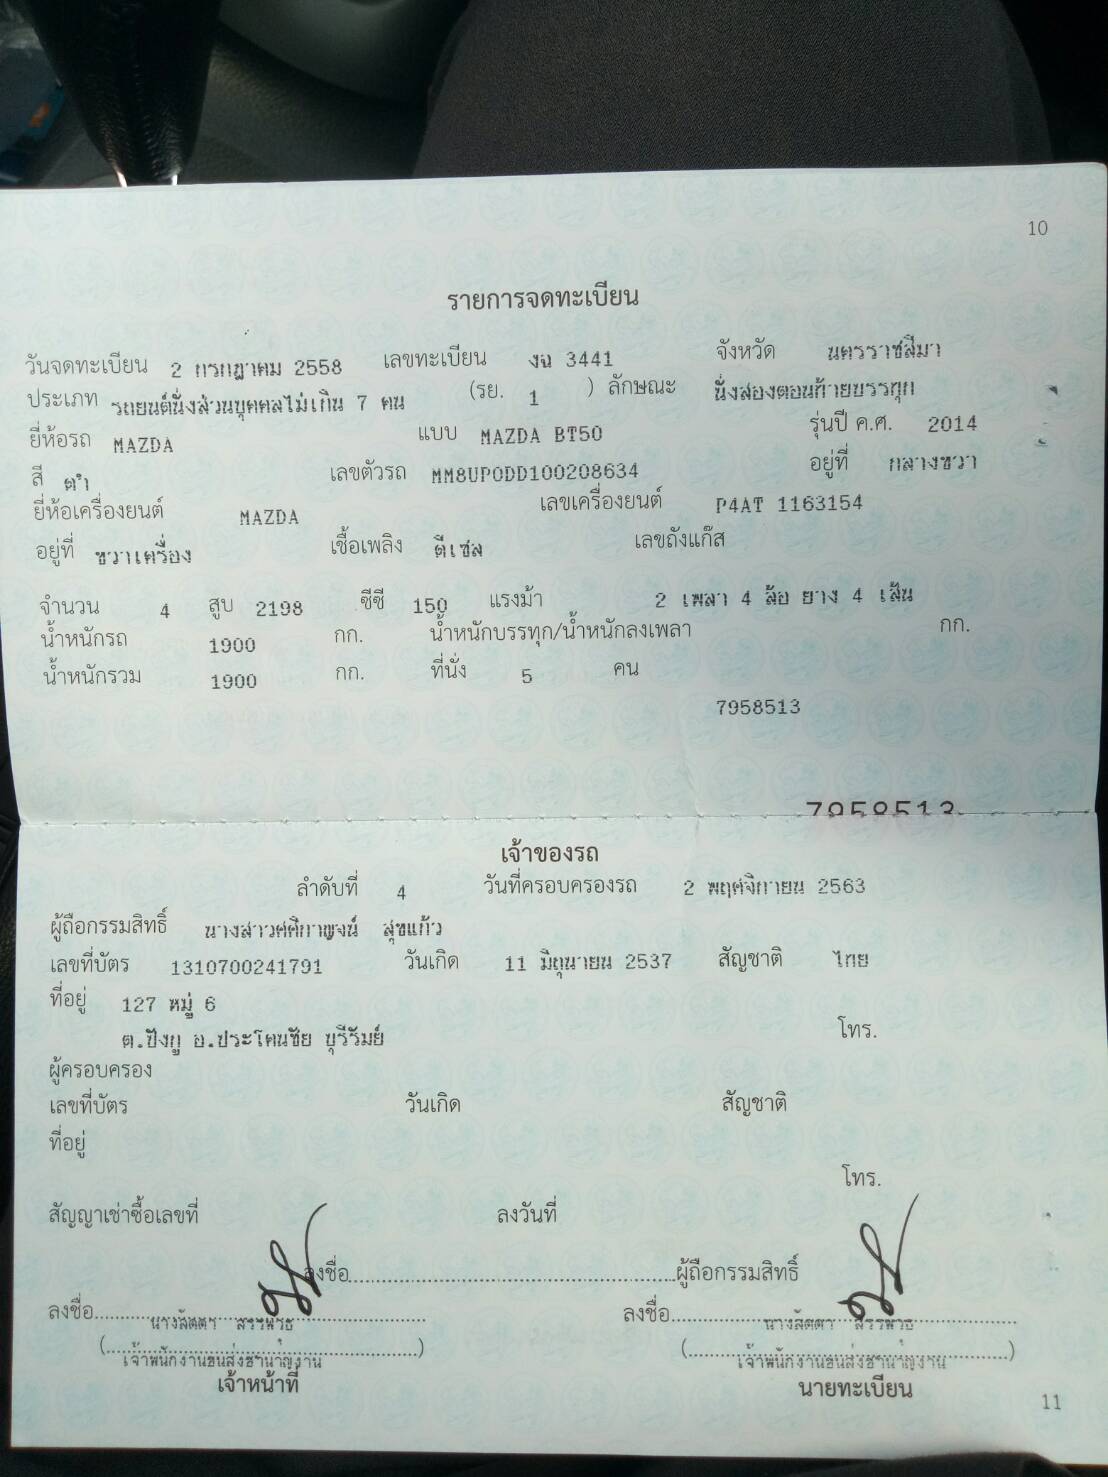 10
รายการจดทะเบียน
วันจดทะเบียน 2 กรกฎาคม 2558 เลขทะเบียน งฉ 3441 จังหวัด นครราชสีมา
ประเภท รถยนต์นั่งส่วนบุคคลไม่เกิน 7 คน (รย. 1 ) ลักษณะ นั่งสองตอนท้ายบรรทุก
ยี่ห้อรถ MAZDA แบบ MAZDA BT50 รุ่นปี ค.ศ. 2014
สี ดำ เลขตัวรถ MM8UP0DD100208634 อยู่ที่ กลางขวา
ยี่ห้อเครื่องยนต์ MAZDA เลขเครื่องยนต์ P4AT 1163154
อยู่ที่ ขวาเครื่อง เชื้อเพลิง ดีเซล เลขถังแก๊ส
จำนวน 4 สูบ 2198 ซีซี 150 แรงม้า 2 เพลา 4 ล้อ ยาง 4 เส้น
น้ำหนักรถ 1900 กก. น้ำหนักบรรทุก/น้ำหนักลงเพลา กก.
น้ำหนักรวม 1900 กก. ที่นั่ง 5 คน
7958513
7958513
เจ้าของรถ
ลำดับที่ 4 วันที่ครอบครองรถ 2 พฤศจิกายน 2563
ผู้ถือกรรมสิทธิ์ นางสาวศศิกาญจน์ สุขแก้ว
เลขที่บัตร 1310700241791 วันเกิด 11 มิถุนายน 2537 สัญชาติ ไทย
ที่อยู่ 127 หมู่ 6
ต.ปังกู อ.ประโคนชัย บุรีรัมย์ โทร.
ผู้ครอบครอง
เลขที่บัตร วันเกิด สัญชาติ
ที่อยู่
โทร.
สัญญาเช่าซื้อเลขที่ ลงวันที่
ลงชื่อ ผู้ถือกรรมสิทธิ์
ลงชื่อ ลงชื่อ
นางลัดดา นางลัดดา
(เจ้าพนักงานขนส่งชำนาญงาน) (เจ้าพนักงานขนส่งชำนาญงาน)
เจ้าหน้าที่ นายทะเบียน
11